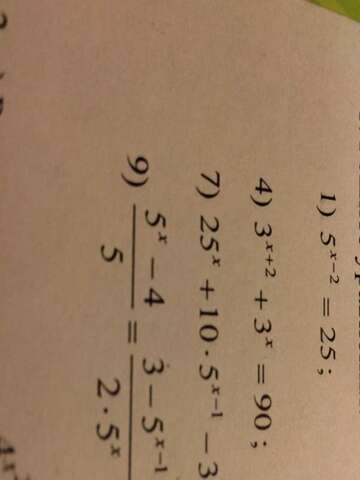 1) 5^{x-2} = 25;
4) 3^{x+2} + 3^x = 90;
7) 25^x + 10 · 5^{x-1} − 3
9) \frac{5^x − 4}{5} = \frac{3 − 5^{x-1}}{2 · 5^x}